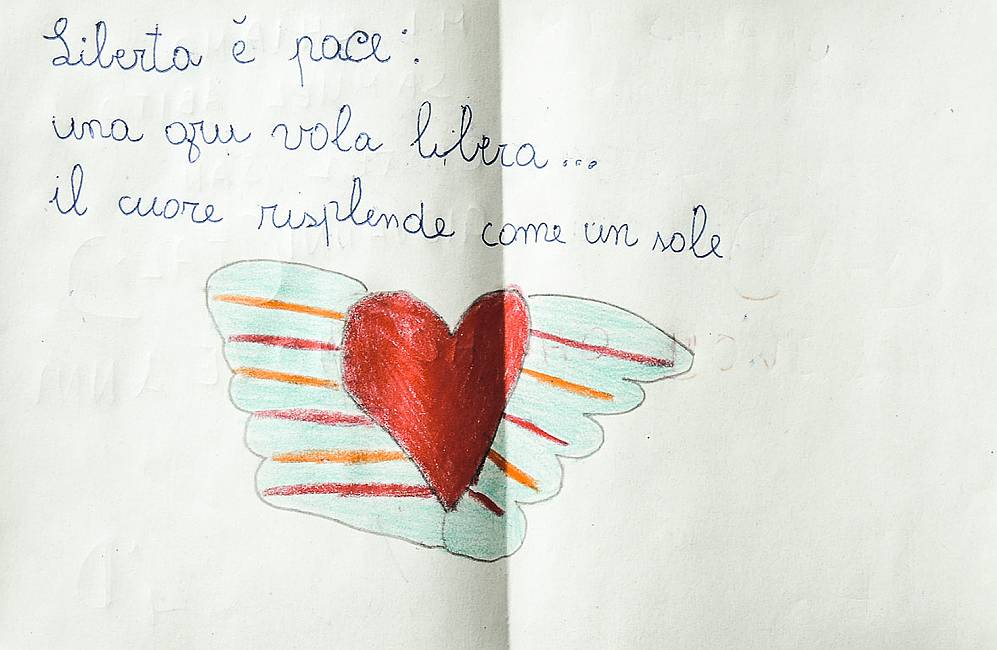 Liberta è pace:
una gru vola libera...
il cuore risplende come un sole